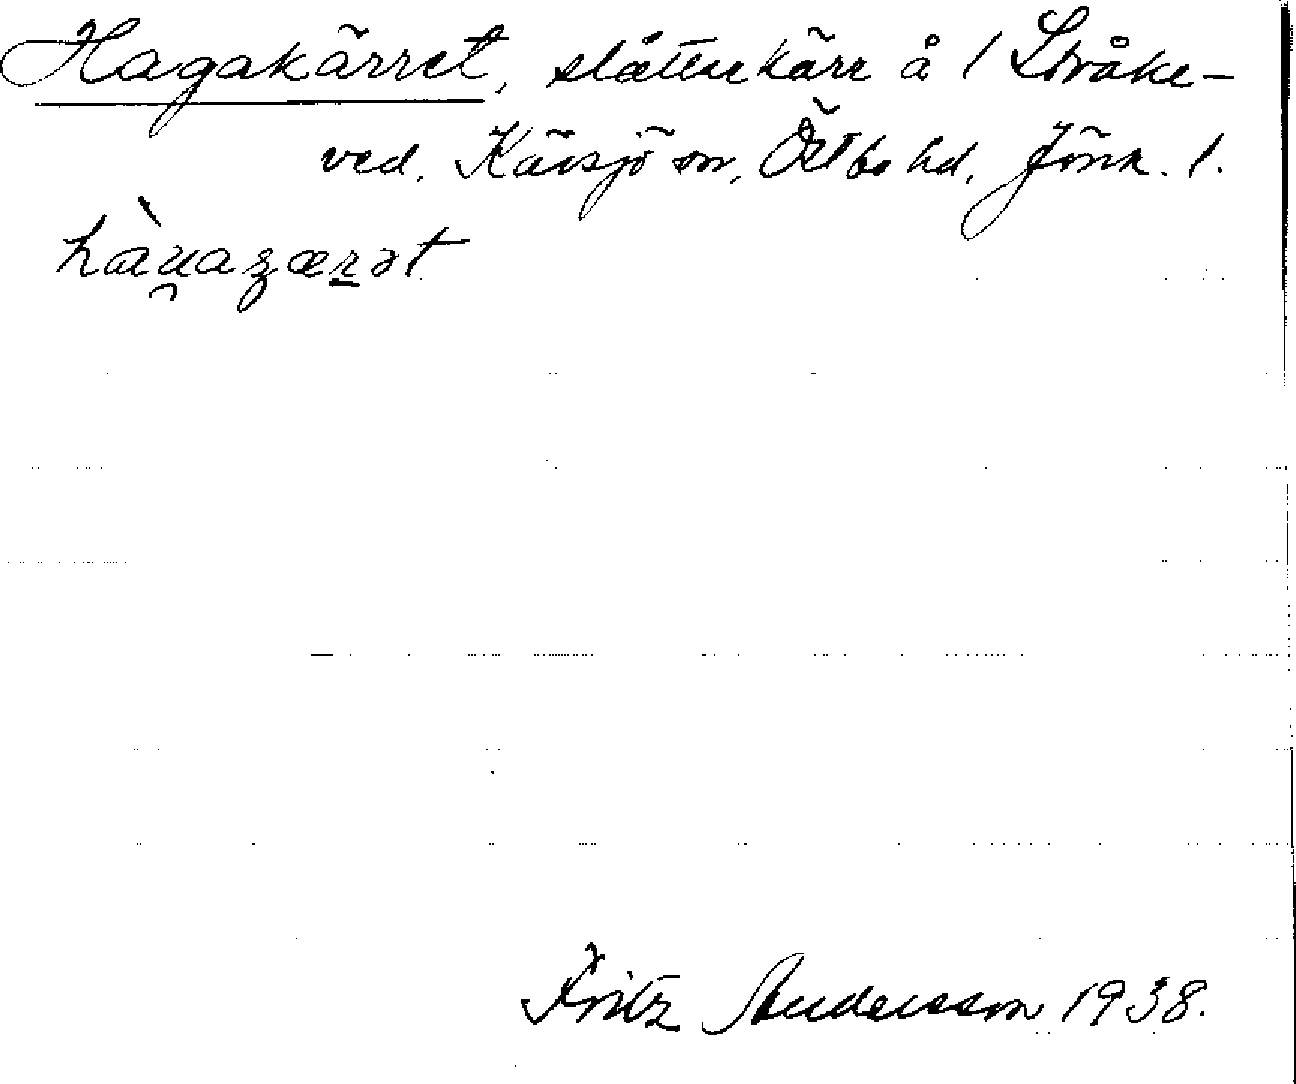 Hagakärret, slåttekärr å 1 Stråke-
ved, Kävsjö sn, Östbo hd, Jönk. l.
Fritz Andersson 1938.